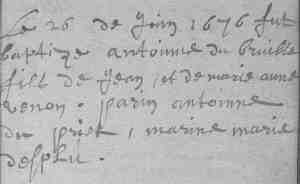 Le 26 de Juin 1676 fut
baptize antoinne du bruille
fils de Jean, et de marie anne
venon. parin antoinne
du priet, marine marie
desplu.